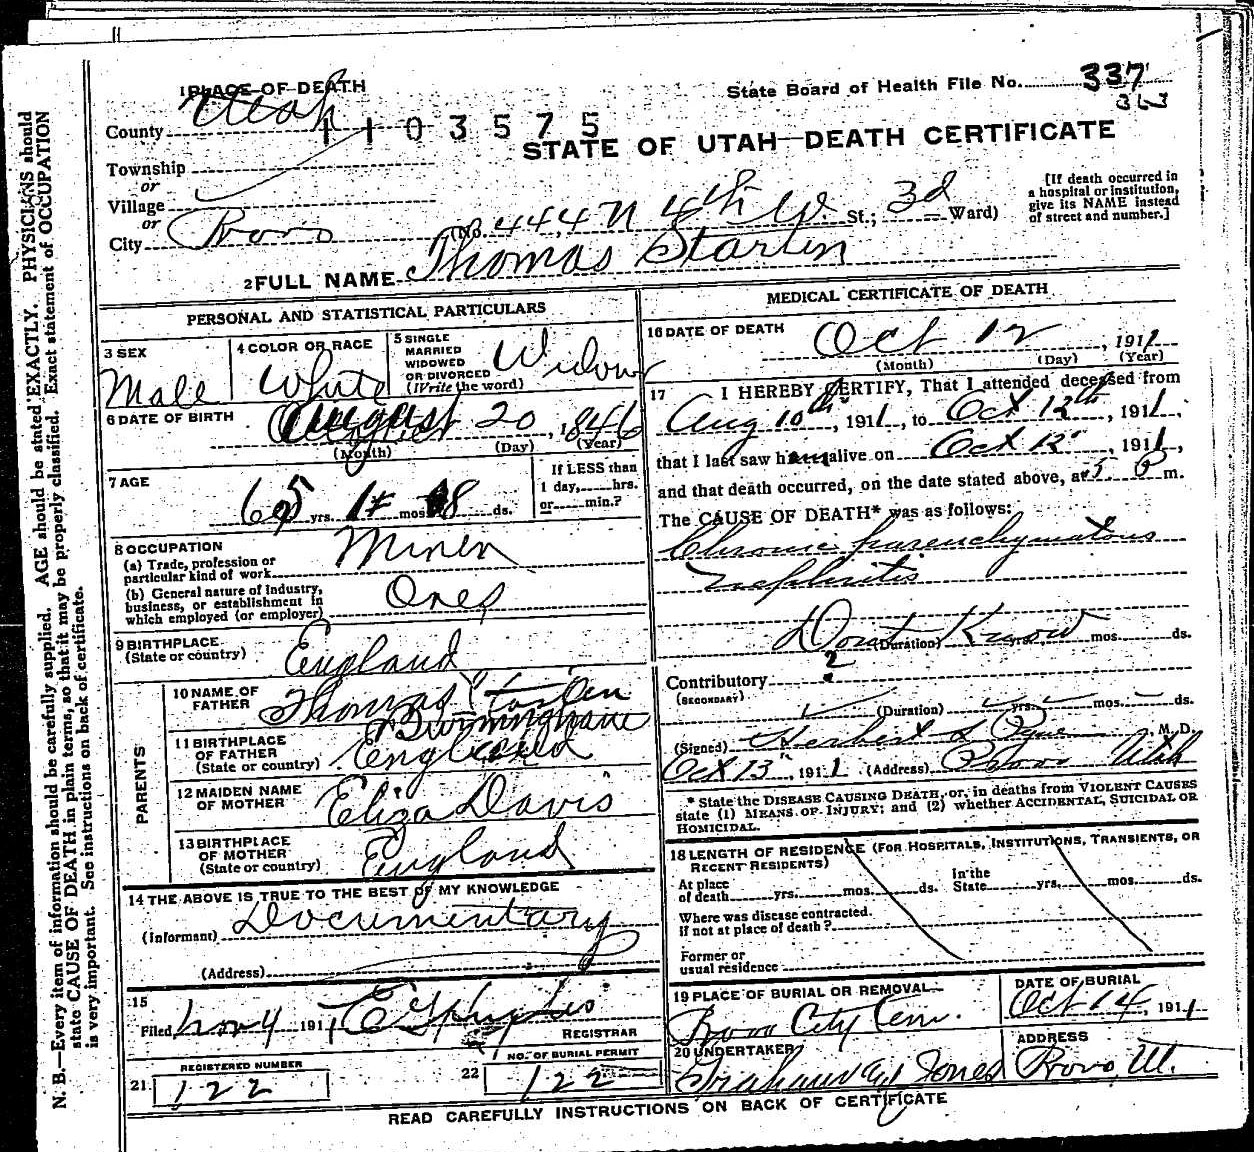 1 PLACE OF DEATH
State Board of Health File No. 337
363
County Utah
1103575
STATE OF UTAH—DEATH CERTIFICATE
Township
or
Village
or
City Provo (No. 444 N 4th W. St.; 3d Ward)
[If death occurred in
a hospital or institution,
give its NAME instead
of street and number.]
2 FULL NAME Thomas Starlin
PERSONAL AND STATISTICAL PARTICULARS
3 SEX
Male
4 COLOR OR RACE
White
5 SINGLE
MARRIED
WIDOWED
OR DIVORCED
(Write the word)
Widow
6 DATE OF BIRTH
August 20, 1846
(Month) (Day) (Year)
7 AGE
65 yrs. 1 mos. 18 ds.
If LESS than
1 day, hrs.
or min.?
8 OCCUPATION
(a) Trade, profession or
particular kind of work Miner
(b) General nature of industry,
business, or establishment in
which employed (or employer) Ores
9 BIRTHPLACE
(State or country) England
PARENTS
10 NAME OF
FATHER Thomas
11 BIRTHPLACE
OF FATHER
(State or country) Birmingham
England
12 MAIDEN NAME
OF MOTHER Eliza Davis
13 BIRTHPLACE
OF MOTHER
(State or country) England
14 THE ABOVE IS TRUE TO THE BEST OF MY KNOWLEDGE
(Informant) Documentary
(Address)
15
Filed Nov 4 191
REGISTRAR
REGISTERED NUMBER
21 122
NO. OF BURIAL PERMIT
22 122
MEDICAL CERTIFICATE OF DEATH
16 DATE OF DEATH
Oct 12, 1911
(Month) (Day) (Year)
17 I HEREBY CERTIFY, That I attended deceased from
Aug 10th, 1911, to Oct 12th, 1911,
that I last saw him alive on Oct 12, 1911,
and that death occurred, on the date stated above, at 5 P m.
The CAUSE OF DEATH* was as follows:
Chronic parenchymatous
nephritis
Dont Know
(Duration) yrs. mos. ds.
Contributory ?
(SECONDARY)
(Duration) yrs. mos. ds.
(Signed) Herbert S Pyne M. D.
Oct 13, 1911 (Address) Provo Utah
* State the DISEASE CAUSING DEATH, or, in deaths from VIOLENT CAUSES
state (1) MEANS OF INJURY; and (2) whether ACCIDENTAL, SUICIDAL OR
HOMICIDAL.
18 LENGTH OF RESIDENCE (FOR HOSPITALS, INSTITUTIONS, TRANSIENTS, OR
RECENT RESIDENTS)
At place
of death yrs. mos. ds.
In the
State yrs. mos. ds.
Where was disease contracted.
if not at place of death?
Former or
usual residence
19 PLACE OF BURIAL OR REMOVAL
Provo City Cem.
DATE OF BURIAL
Oct 14, 1911
20 UNDERTAKER
Graham and Jones
ADDRESS
Provo, Ut.
READ CAREFULLY INSTRUCTIONS ON BACK OF CERTIFICATE
N. B.—Every item of information should be carefully supplied. AGE should be stated EXACTLY. PHYSICIANS should
state CAUSE OF DEATH in plain terms, so that it may be properly classified. Exact statement of OCCUPATION
is very important. See instructions on back of certificate.